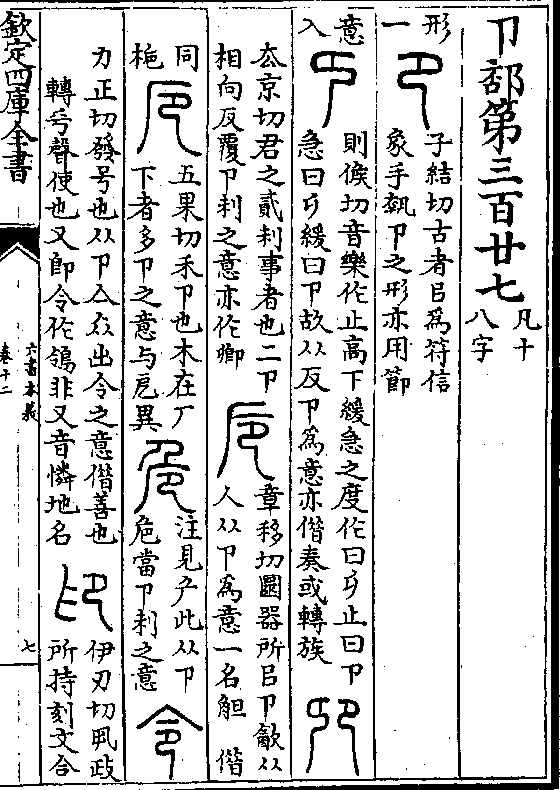 卩部第三百廿七 凡十
八字
形一
子結切古者㠯為符信
象手執卩之形亦用節
意入
則候切音樂作止高下緩急之度作曰𠨎止曰卩
急曰𠨎緩曰卩故从反卩為意亦借奏或轉族
厺京切君之貳制事者也二卩
相向反覆卩制之意亦作卿
章移切圜器所㠯卩飲从
人从卩為意一名觛 借
同栀
五果切禾卩也木在厂
下者多卩之意与卮異
注見厃此从卩
危當卩制之意
力正切發号也从卩亼众出令之意借善也
轉平聲使也又即令作鴒非又音憐地名
伊刃切執政
所持刻文合
欽定四庫全書
六書本義
卷十二
七